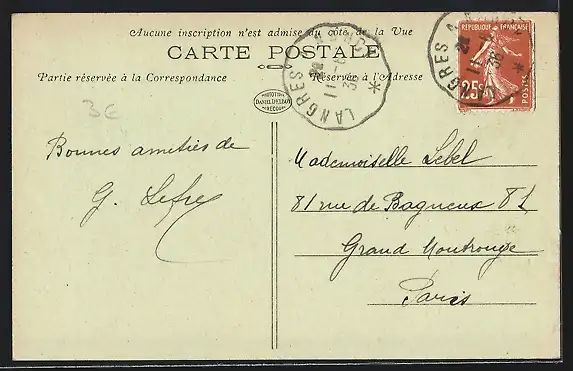 Aucune inscription n'est admise du côté de la Vue
CARTE POSTALE
Partie réservée à la Correspondance
Réservée à l'Adresse
DANIEL DELBOY
MIRECOURT
RÉPUBLIQUE FRANÇAISE
25c
POSTES
LANGRES
LANGRES
3€
Bonnes amitiés de
G. Lefre
Mademoiselle Lebel
81 rue de Bagneux 81
Grand Montrouge
Paris